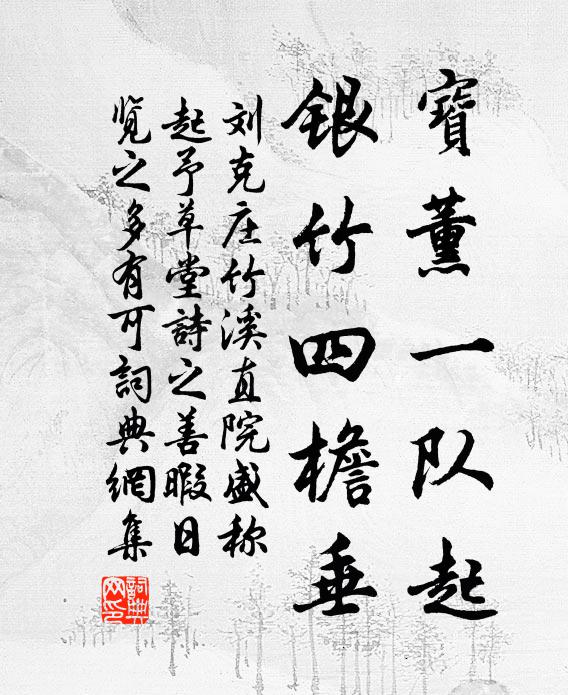 寶薰一队起
銀竹四檐垂
刘克庄竹溪直院盛称
起予草堂詩之善暇日
览之多有可詞典網集